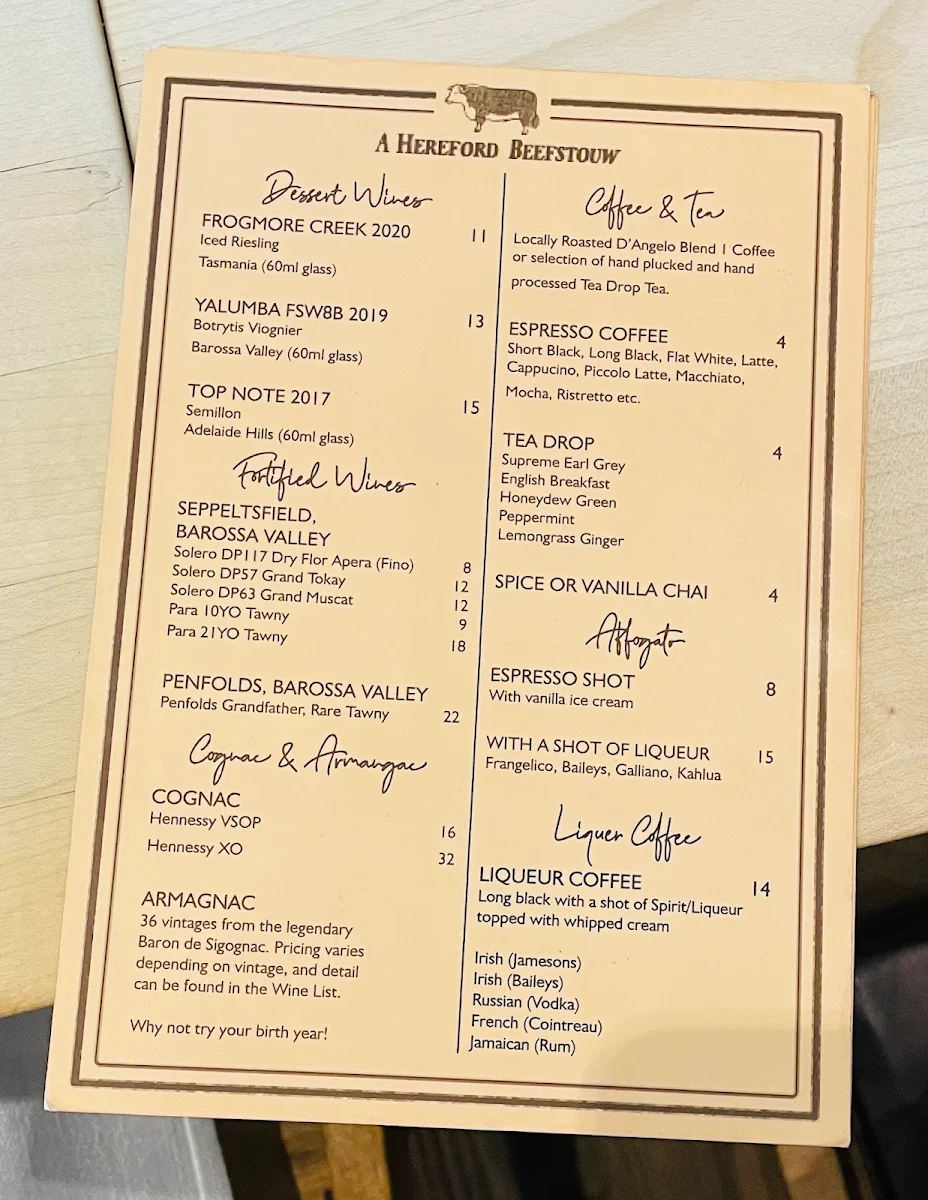 A HEREFORD BEEFSTOUW
Dessert Wines
FROGMORE CREEK 2020 11
Iced Riesling
Tasmania (60ml glass)
YALUMBA FSW8B 2019 13
Botrytis Viognier
Barossa Valley (60ml glass)
TOP NOTE 2017 15
Semillon
Adelaide Hills (60ml glass)
Fortified Wines
SEPPELTSFIELD,
BAROSSA VALLEY
Solero DP117 Dry Flor Apera (Fino) 8
Solero DP57 Grand Tokay 12
Solero DP63 Grand Muscat 12
Para 10YO Tawny 9
Para 21YO Tawny 18
PENFOLDS, BAROSSA VALLEY
Penfolds Grandfather, Rare Tawny 22
Cognac & Armangac
COGNAC
Hennessy VSOP 16
Hennessy XO 32
ARMAGNAC
36 vintages from the legendary
Baron de Sigognac. Pricing varies
depending on vintage, and detail
can be found in the Wine List.
Why not try your birth year!
Coffee & Tea
Locally Roasted D'Angelo Blend | Coffee
or selection of hand plucked and hand
processed Tea Drop Tea.
ESPRESSO COFFEE 4
Short Black, Long Black, Flat White, Latte,
Cappucino, Piccolo Latte, Macchiato,
Mocha, Ristretto etc.
TEA DROP 4
Supreme Earl Grey
English Breakfast
Honeydew Green
Peppermint
Lemongrass Ginger
SPICE OR VANILLA CHAI 4
Affogato
ESPRESSO SHOT 8
With vanilla ice cream
WITH A SHOT OF LIQUEUR 15
Frangelico, Baileys, Galliano, Kahlua
Liquer Coffee
LIQUEUR COFFEE 14
Long black with a shot of Spirit/Liqueur
topped with whipped cream
Irish (Jamesons)
Irish (Baileys)
Russian (Vodka)
French (Cointreau)
Jamaican (Rum)